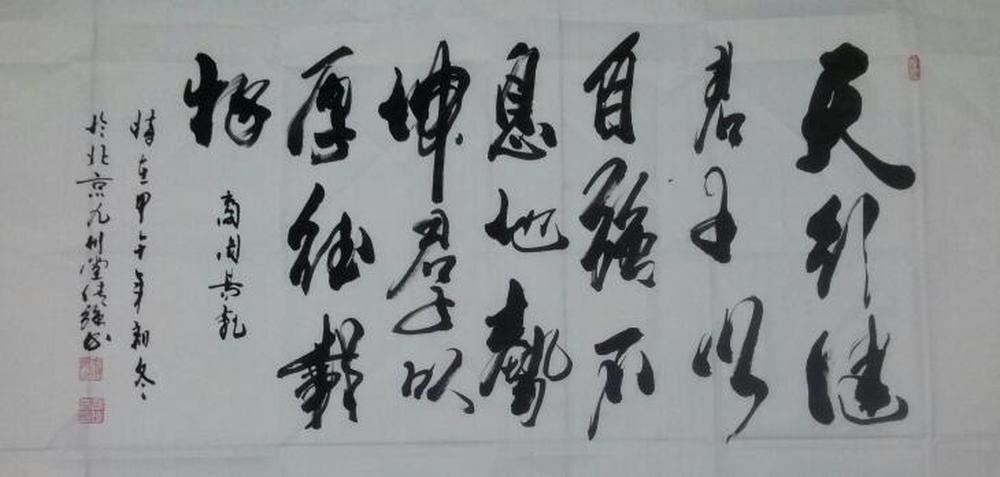 天行健
君子以
自强不
息地势
坤君子以
厚德载
物
商周易乾
时在甲午年初冬
於北京九州堂